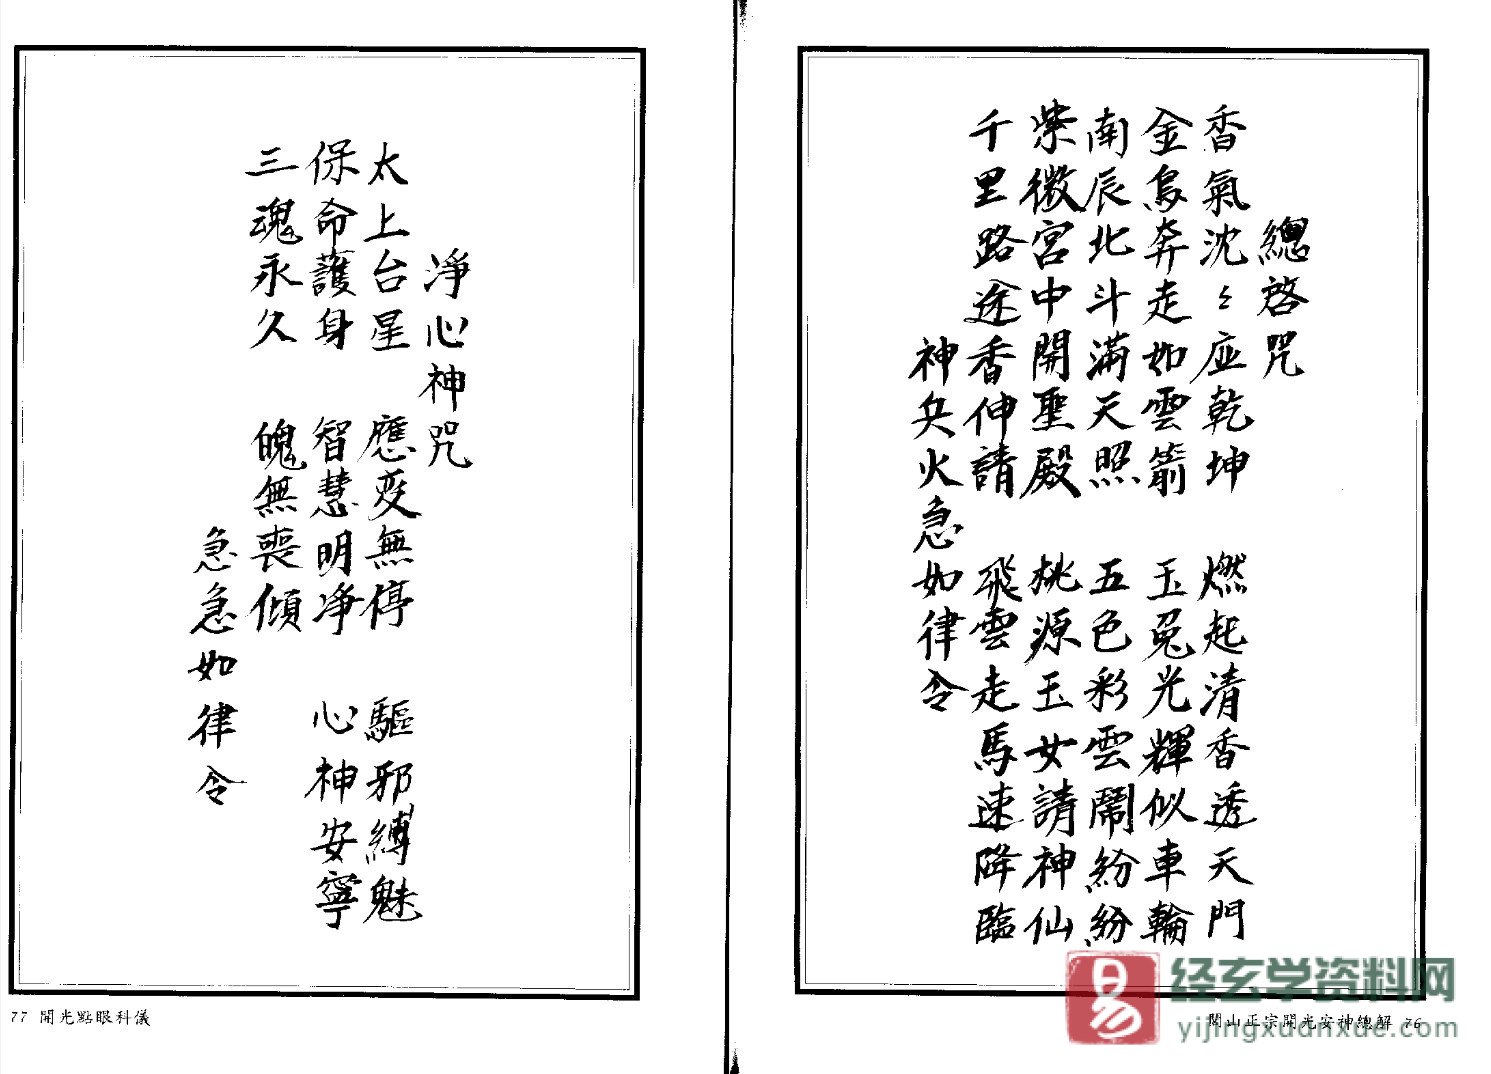 總啓咒
香氣沈〻应乾坤　燃起清香透天門
金烏奔走如雲箭　玉兎光輝似車輪
南辰北斗滿天照　五色彩雲鬧紛紛
紫微宮中開聖殿　桃源玉女請神仙
千里路途香伸請　飛雲走馬速降臨
神兵火急如律令
閭山正宗開光安神總解 76
淨心神咒
太上台星　應变無停　驅邪縛魅
保命護身　智慧明净　心神安寧
三魂永久　魄無喪傾
急急如律令
77 開光點眼科儀
易
经玄学资料网
yijingxuanxue.com